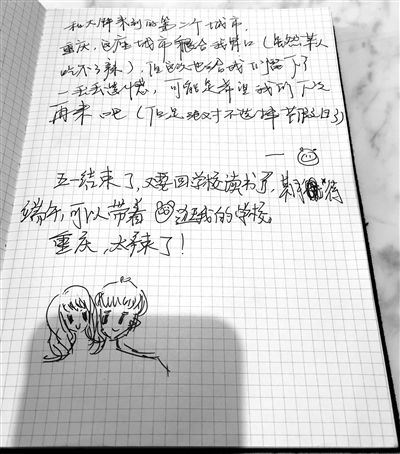 和大胖来到的第二个城市,
重庆,这座城市很合我胃口(虽然某人
吃不了辣),但这次也给我们留下了
一丢丢遗憾,可能是希望我们下次
再来吧(但是绝对不选择节假日了)
五一结束了,又要回学校读书了,期待
端午,可以带着 逛我的学校
重庆,太辣了!